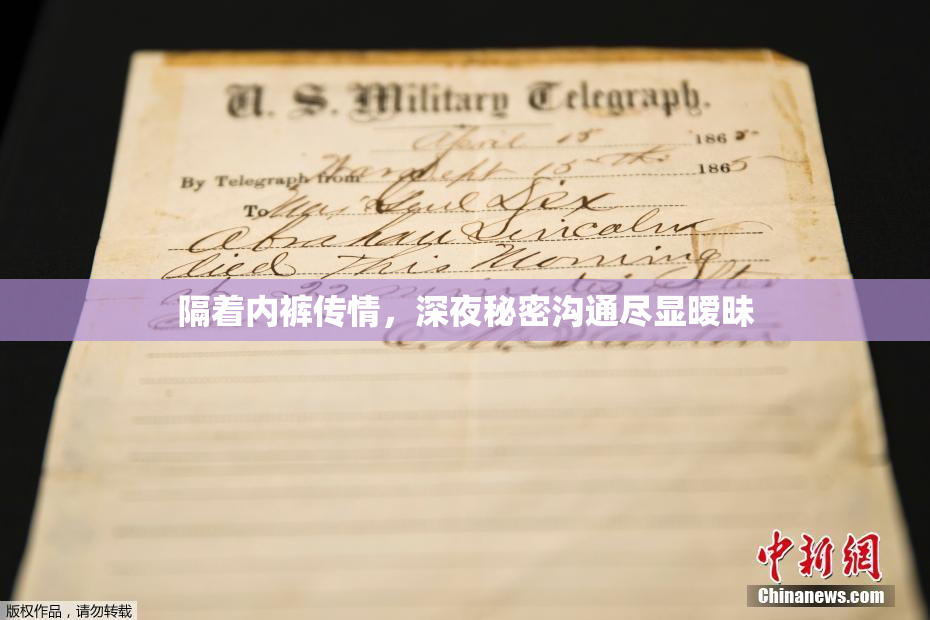 U. S. Military Telegraph.
April 15 1865
By Telegraph from War Dept 15th 1865
To Maj Genl Dix
Abraham Lincoln
died This Morning
at 22 minutes after
隔着内裤传情，深夜秘密沟通尽显暧昧
E. M. Stanton
中新网
Chinanews.com
版权作品，请勿转载